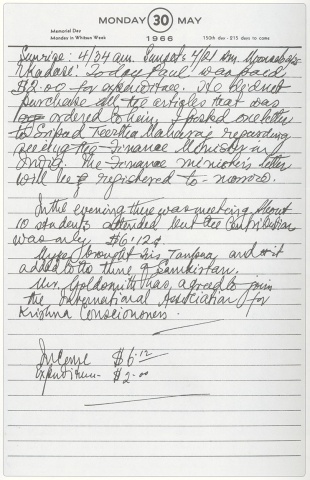 MONDAY 30 MAY
Memorial Day
Monday in Whitsun Week
1966
150th day - 215 days to come
Sunrise: 4/34 am. Sunset: 7/21 p.m.
Ekadasi: Today Paul was paid
$2.00 for expenditure. He did not
purchase all the articles that was
ordered to him. I posted one letter
to Sripad Teertha Maharaj regarding
seeing the Finance Minister in
India. The Finance minister's letter
will be registered to-morrow.
In the evening there was meeting About
10 students attended but the Contribution
was only $6.12¢
brought his Tanpura and it
added to the tune of Samkirtan.
Mr. Goldsmith has agreed to join
the International Association for
Krishna Consciousness.
Income $6.12
Expenditure - $2.00